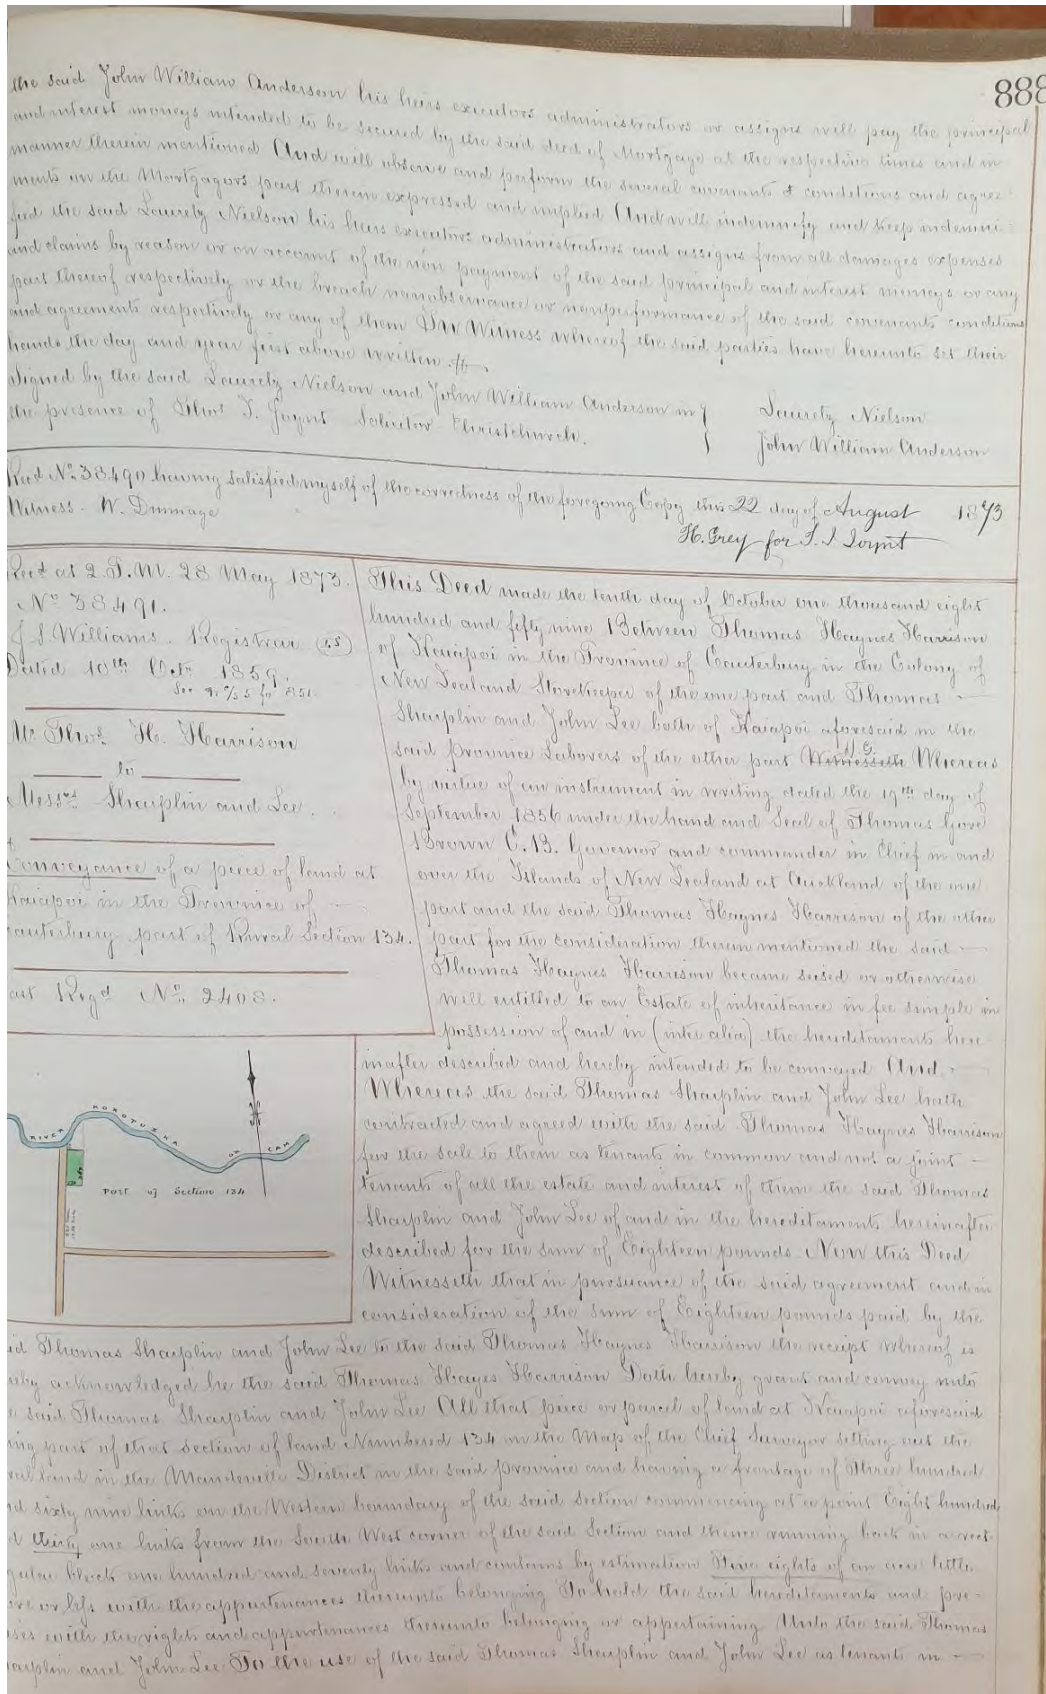 888
the said John William Anderson his heirs executors administrators or assigns will pay the principal
and interest moneys intended to be secured by the said deed of Mortgage at the respective times and in
manner therein mentioned And will observe and perform the several covenants & conditions and agree=
ments on the Mortgagors part therein expressed and implied And will indemnify and keep indemni=
fied the said Lauretz Nielson his heirs executors administrators and assigns from all damages expenses
and claims by reason or on account of the non payment of the said principal and interest moneys or any
part thereof respectively or the breach nonobservance or nonperformance of the said covenants conditions
and agreements respectively or any of them In Witness whereof the said parties have hereunto set their
hands the day and year first above written.
Signed by the said Lauretz Nielson and John William Anderson in
the presence of Thos. I. Joynt Solicitor Christchurch.
Lauretz Nielson
John William Anderson
Recd No. 38490 having satisfied myself of the correctness of the foregoing Copy this 22 day of August 1873
Witness - W. Dunnage
H. Grey for T. I. Joynt
Recd at 2 P.M. 28 May 1873.
No. 38491.
J. S. Williams. Registrar (LS)
Dated 10th Octr. 1859.
Mr Thos. H. Harrison
to
Messrs Sharplin and Lee.
Conveyance of a piece of land at
Kaiapoi in the Province of —
Canterbury part of Rural Section 134.
Last Regd No. 2408.
This Deed made the tenth day of October one thousand eight
hundred and fifty nine Between Thomas Haynes Harrison
of Kaiapoi in the Province of Canterbury in the Colony of
New Zealand Storekeeper of the one part and Thomas —
Sharplin and John Lee both of Kaiapoi aforesaid in the
said province Laborers of the other part Witnesseth Whereas
by virtue of an instrument in writing dated the 19th day of
September 1856 under the hand and Seal of Thomas Gore
Brown C.B. Governor and commander in Chief in and
over the Islands of New Zealand at Auckland of the one
part and the said Thomas Haynes Harrison of the other
part for the consideration therein mentioned the said —
Thomas Haynes Harrison became seised or otherwise
well entitled to an Estate of inheritance in fee simple in
possession of and in (inter alia) the hereditaments here
inafter described and hereby intended to be conveyed And —
Whereas the said Thomas Sharplin and John Lee hath
contracted and agreed with the said Thomas Haynes Harrison
for the sale to them as tenants in common and not a joint —
tenants of all the estate and interest of them the said Thomas
Sharplin and John Lee of and in the hereditaments hereinafter
described for the sum of Eighteen pounds Now this Deed
Witnesseth that in pursuance of the said agreement and in
consideration of the sum of Eighteen pounds paid by the
RIVER KOROTUEKA OR CAM
Part of Section 134
id Thomas Sharplin and John Lee to the said Thomas Haynes Harrison the receipt whereof is
reby acknowledged he the said Thomas Hayes Harrison Doth hereby grant and convey unto
e said Thomas Sharplin and John Lee All that piece or parcel of land at Kaiapoi aforesaid
ing part of that Section of land Numbered 134 on the Map of the Chief Surveyor setting out the
ral land in the Mandeville District in the said province and having a frontage of Three hundred
nd sixty nine links on the Western boundary of the said Section commencing at a point Eight hundred
d thirty one links from the South West corner of the said Section and thence running back in a rect
gular block one hundred and seventy links and contains by estimation Five eights of an acre little
ore or less with the appurtenances thereunto belonging To hold the said hereditaments and pre=
ises with the rights and appurtenances thereunto belonging or appertaining Unto the said Thomas
harplin and John Lee To the use of the said Thomas Sharplin and John Lee as tenants in —